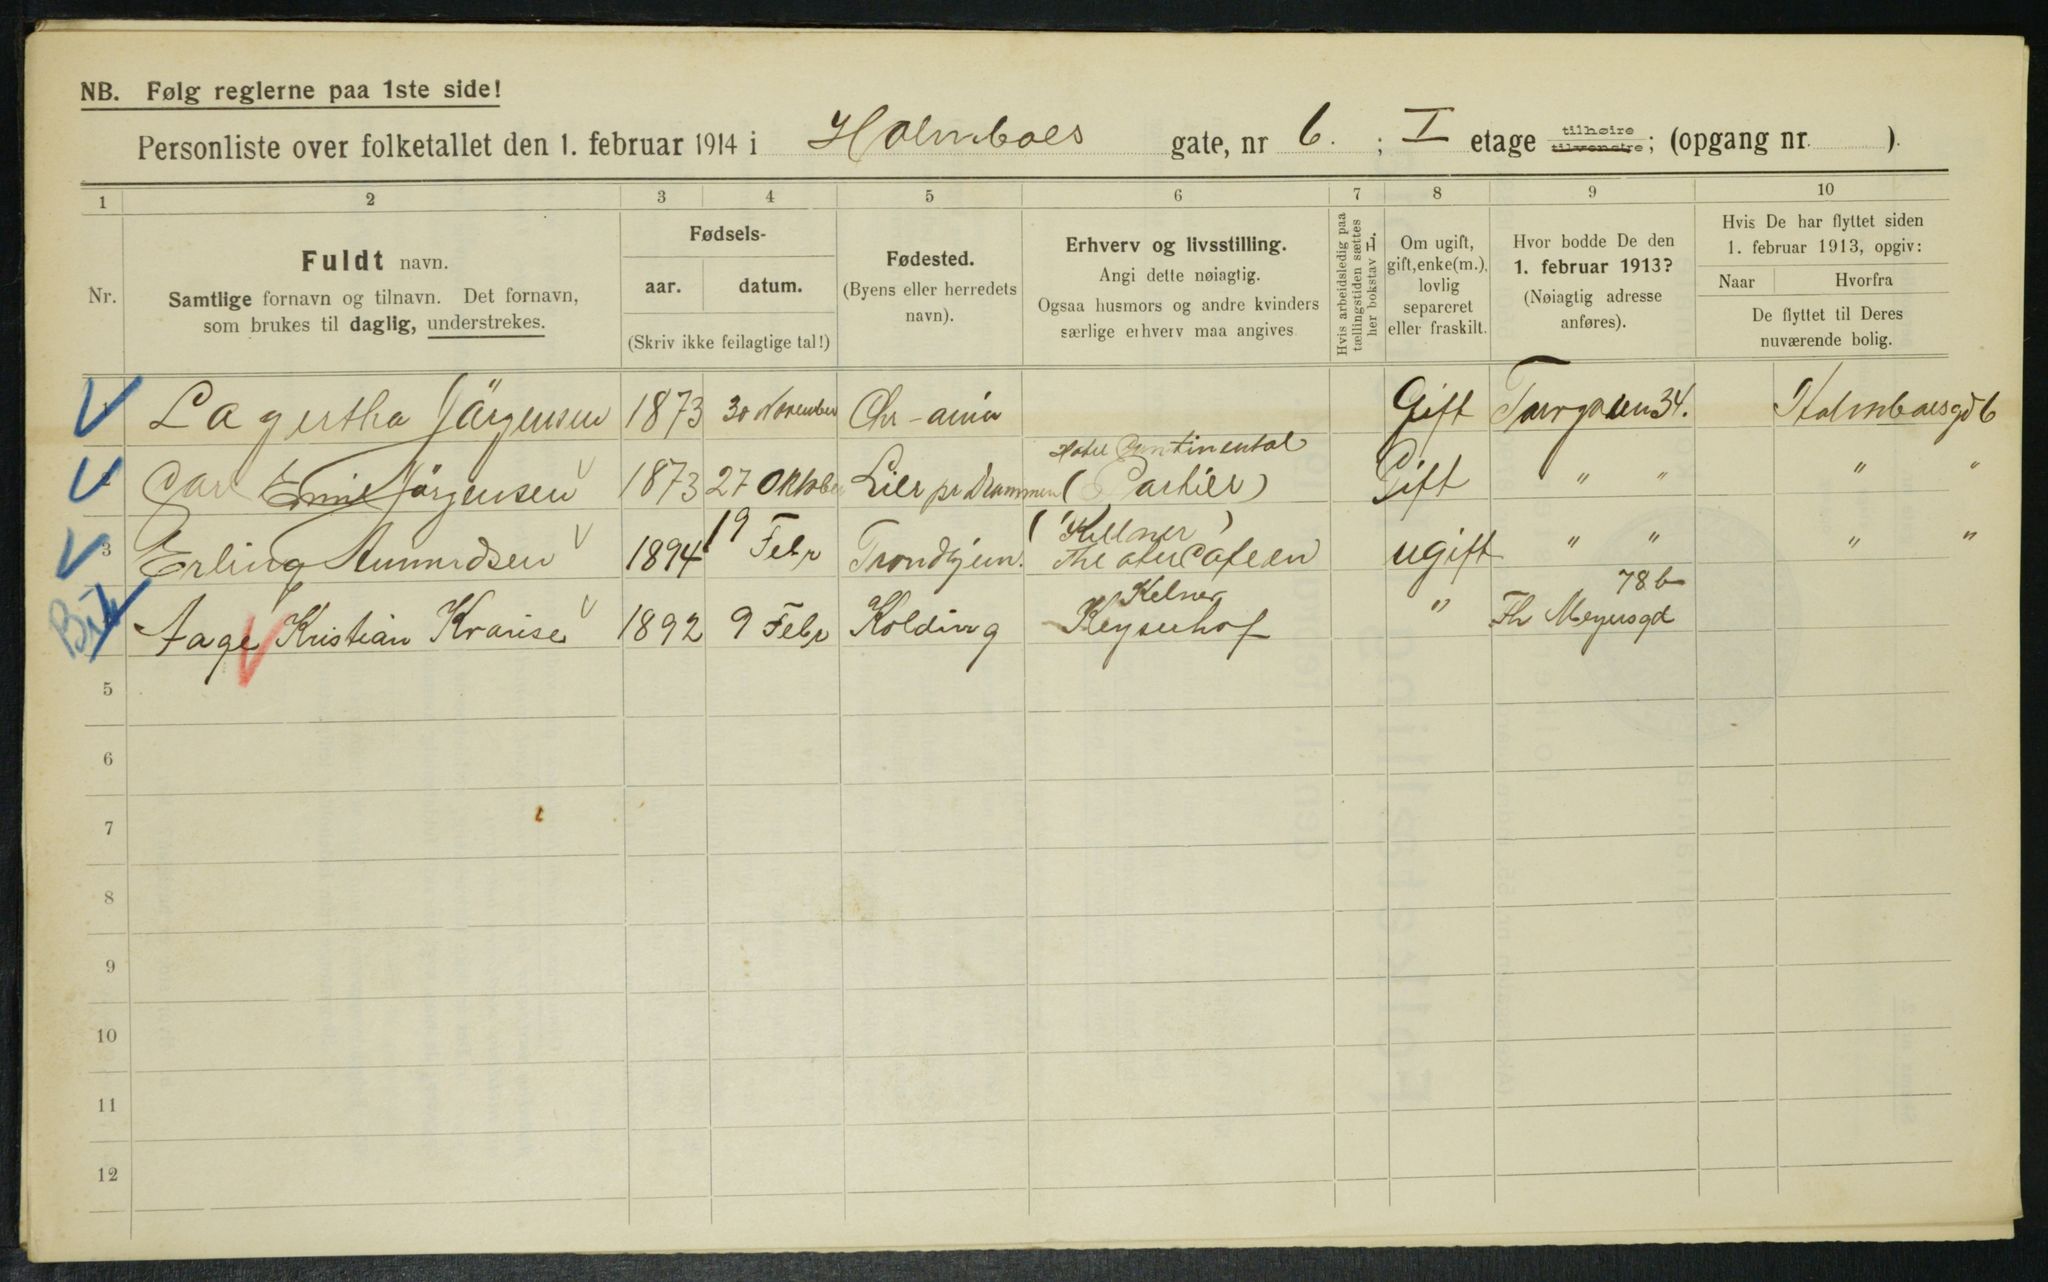 NB. Følg reglerne paa 1ste side!
Personliste over folketallet den 1. februar 1914 i Holmboes gate, nr 6. ; I etage tilhøire tilvenstre; (opgang nr. ).
1 2 3 4 5 6 7 8 9 10
Nr.
Fuldt navn.
Samtlige fornavn og tilnavn. Det fornavn,
som brukes til daglig, understrekes.
Fødsels-
aar. datum.
(Skriv ikke feilagtige tal!)
Fødested.
(Byens eller herredets
navn).
Erhverv og livsstilling.
Angi dette nøiagtig.
Ogsaa husmors og andre kvinders
særlige erhverv maa angives.
Hvis arbeidsledig paa
tællingstiden sættes
her bokstav L.
Om ugift,
gift, enke(m.),
lovlig
separeret
eller fraskilt.
Hvor bodde De den
1. februar 1913?
(Nøiagtig adresse
anføres).
Hvis De har flyttet siden
1. februar 1913, opgiv:
Naar Hvorfra
De flyttet til Deres
nuværende bolig.
Lagertha Jörgensen 1873 30 November Chr-ania Gift 34. Holmboesgd 6
Hotel Continental
Carl Emil Jörgensen 1873 27 Oktober Lier pr Drammen (Portier) Gift " " " "
(Kellner)
3 Erling Amundsen 1894 19 Febr Trondhjem. Theatercafeen ugift " " " "
Kelner 78b
Aage Kristian Krarise 1892 9 Febr Kolding Keyserhof " Th Meyersgd
5
6
7
8
9
10
11
12